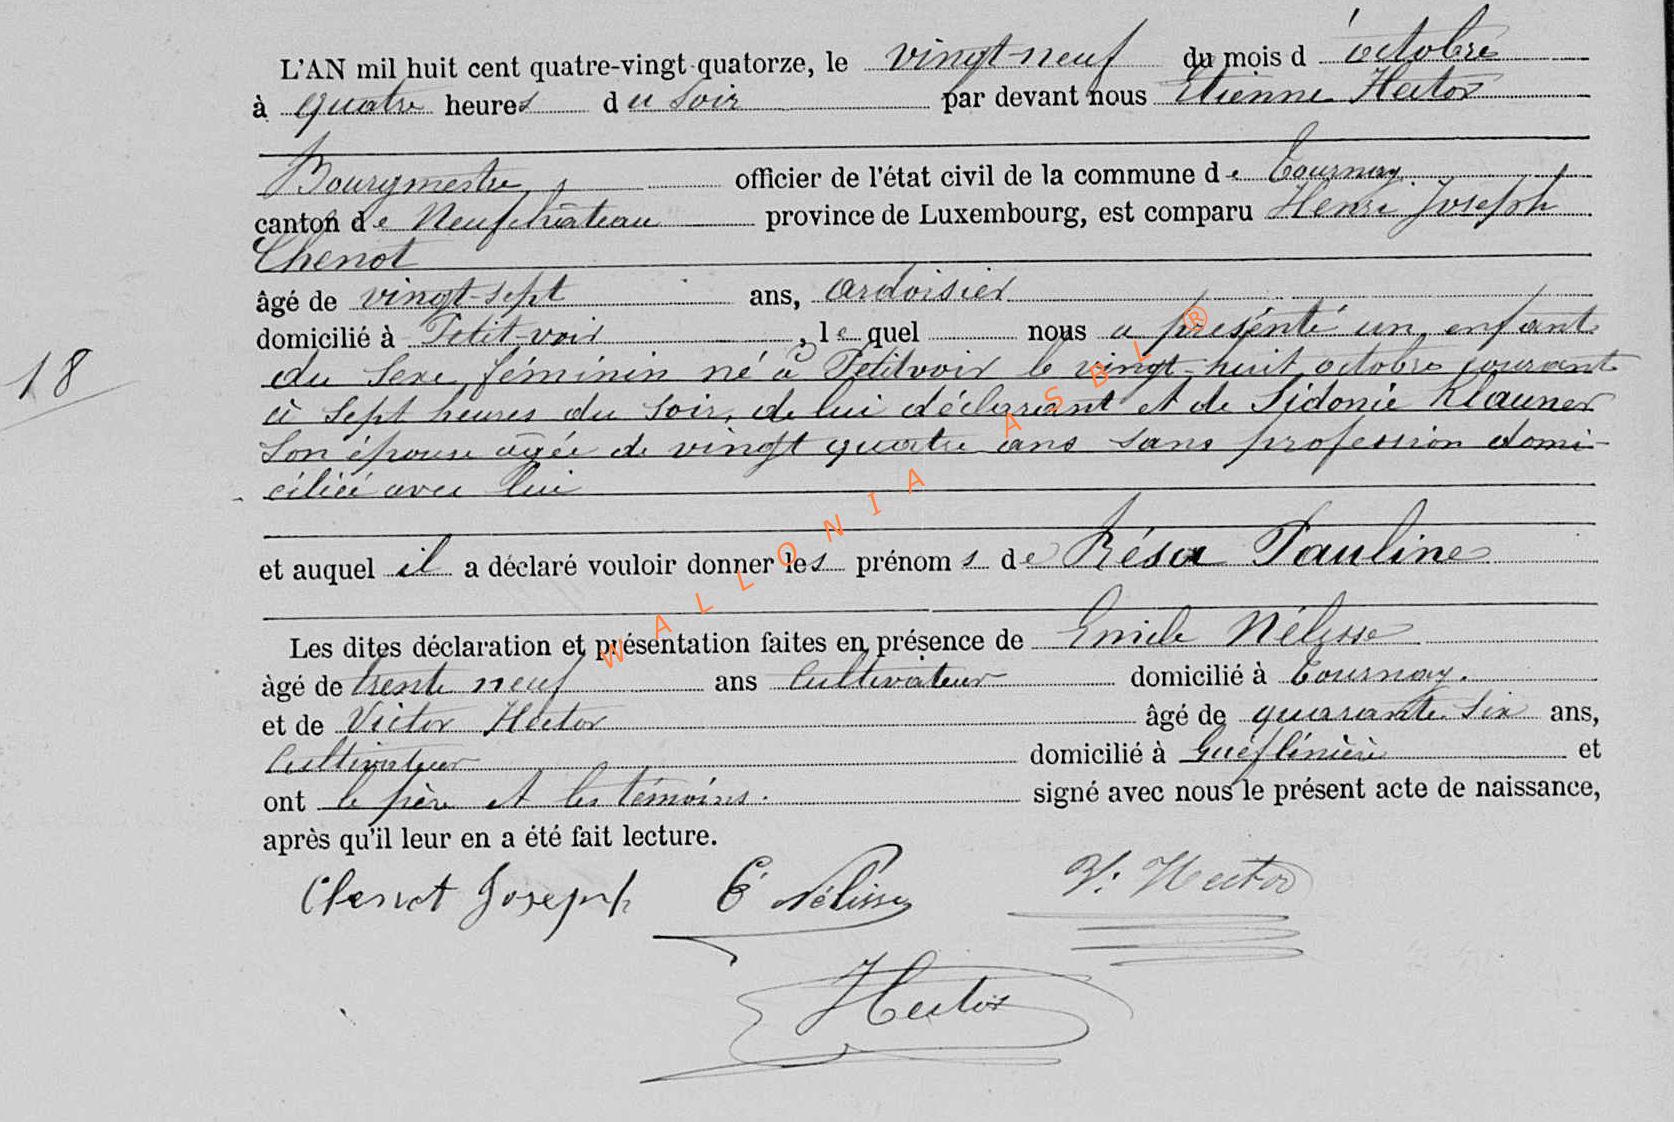 L'AN mil huit cent quatre-vingt-quatorze, le vingt-neuf du mois d'octobre
à quatre heures du soir par devant nous Etienne Hector
Bourgmestre, officier de l'état civil de la commune de Tournay
canton de Neufchâteau province de Luxembourg, est comparu Henri Joseph
Chenot
âgé de vingt-sept ans, ardoisier
domicilié à Petit-voir, lequel nous a présenté un enfant
18
du sexe féminin né à Petitvoir le vingt-huit octobre courant
à sept heures du soir, de lui déclarant et de Sidonie Klauner
son épouse agée de vingt quatre ans sans profession domi-
ciliée avec lui
et auquel il a déclaré vouloir donner les prénoms de Résa Pauline
Les dites déclaration et présentation faites en présence de Emile Nélisse
âgé de trente neuf ans Cultivateur domicilié à Tournay.
et de Victor Hector âgé de quarante-six ans,
Cultivateur domicilié à et
ont le père et les témoins. signé avec nous le présent acte de naissance,
après qu'il leur en a été fait lecture.
Chenot Joseph E Nélisse V. Hector
Hector
WALLONIA ASBL ®